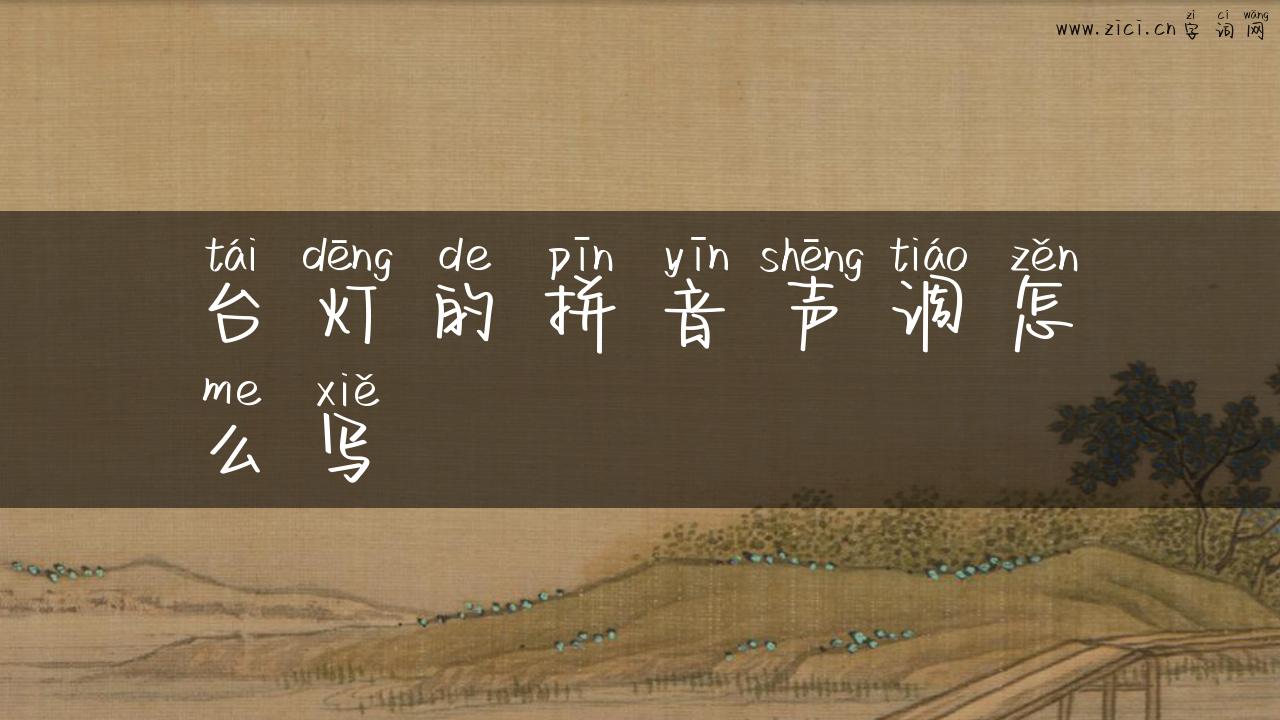 zì cí wǎng
www.zici.cn 字词网
tái dēng de pīn yīn shēng tiáo zěn
台灯的拼音声调怎
me xiě
么写